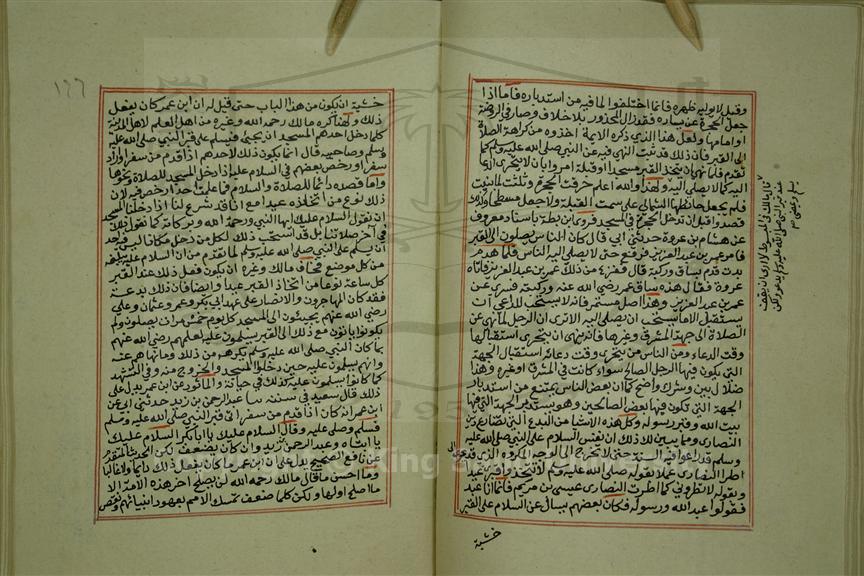 وقيل لا يوليه ظهره فانما اختلفوا لما فيه من استدباره فاما اذا
جعل الحجرة عن يساره فقد زال المحذور بلا خلاف وصار في الروضة
او امامها ولعل هذا الذي ذكره الايمة اخذوه من كراهة الصلاة
الى القبر فان ذلك قد ثبت النهي فيه عن النبي صلى الله عليه وسلم كما
تقدم فلما نهى ان يتخذ القبر مسجدا او قبلة امروا بان لا يتحرى الدعا
اليه كما لا يصلي اليه ولهذا والله اعلم حرفت الحجرة وثلثت لما بنيت
فلم يجعل حائطها الشمالي على سمت القبلة ولا جعل مسطحا وكذلك
قصدوا قبل ان تدخل الحجرة في المسجد فروى ابن بطة باسناد معروف
عن هشام بن عروة حدثني ابي قال كان الناس يصلون الى القبر
فامر عمر بن عبد العزيز فرفع حتى لا يصلي اليه الناس فلما هدم
بدت قدم بساق وركبة قال ففزع من ذلك عمر بن عبد العزيز فاتاه
عروة فقال هذه ساق عمر رضي الله عنه وركبته فسري عن
عمر بن عبد العزيز وهذا اصل مستمر فانه لا يستحب للداعي ان
يستقبل الا ما يستحب ان يصلي اليه الا ترى ان الرجل لما نهي عن
الصلاة الى جهة المشرق وغيرها فانه ينهى ان يتحرى استقبالها
وقت الدعاء ومن الناس من يتحرى وقت دعائه استقبال الجهة
التي يكون فيها الرجل الصالح سواء كانت في المشرق او غيره وهذا
ضلال بين وشرك واضح كما ان بعض الناس يمتنع من استدبار
الجهة التي تكون فيها بعض الصالحين وهو يستدبر الجهة التي فيها
بيت الله وقبر رسوله وكل هذه الاشيا من البدع التي تضارع دين
النصارى ومما يبين لك ذلك ان نفس السلام على النبي صلى الله عليه
وسلم قد راعوا فيه السنة حتى لا تخرج الى الوجه المكروه الذي قد
اطرا النصارى عملا بقوله صلى الله عليه وسلم لا تتخذوا قبري عيدا
وبقوله لا تطروني كما اطرت النصارى عيسى بن مريم فانما انا عبد
فقولوا عبد الله ورسوله فكان بعضهم يسال عن السلام على القبر
خشية
قال مالك في المبسوط لا ارى ان يقف
عند قبر النبي صلى الله عليه وسلم يدعو ولكن
يسلم ويمضي
١٦٦
خشية ان يكون من هذا الباب حتى قيل له ان ابن عمر كان يفعل
ذلك ولهذا كره مالك رحمه الله وغيره من اهل العلم لاهل المدينة
كلما دخل احدهم المسجد ان يجيئ فيسلم على قبر النبي صلى الله عليه
وسلم وصاحبيه قال انما يكون ذلك لاحدهم اذا قدم من سفر او اراد
سفرا ورخص بعضهم في السلام عليه اذا دخل المسجد للصلاة ونحوها
واما قصده دائما للصلاة والسلام فما علمت احدا رخص فيه لان
ذلك نوع من اتخاذه عيدا مع انا قد شرع لنا اذا دخلنا المسجد
ان نقول السلام عليك ايها النبي ورحمة الله وبركاته كما نقول ذلك
في اخر صلاتنا بل قد استحب ذلك لكل من دخل مكانا ليس فيه احد
ان يسلم على النبي صلى الله عليه وسلم لما تقدم من ان السلام عليه يبلغه
من كل موضع فخاف مالك وغيره ان يكون فعل ذلك عند القبر
كل ساعة نوعا من اتخاذ القبر عيدا وايضا فان ذلك بدعة
فقد كان المهاجرون والانصار على عهد ابي بكر وعمر وعثمان وعلي
رضي الله عنهم يجيئون الى المسجد كل يوم خمس مرات يصلون ولم
يكونوا ياتون مع ذلك الى القبر يسلمون عليه لعلمهم رضي الله عنهم
بما كان النبي صلى الله عليه وسلم يكرهه من ذلك وما نهاهم عنه
وانهم يسلمون عليه حين دخول المسجد والخروج منه وفي التشهد
كما كانوا يسلمون عليه كذلك في حياته والماثور عن ابن عمر يدل على
ذلك قال سعيد في سننه ثنا عبد الرحمن بن زيد حدثني ابي عن
ابن عمر انه كان اذا قدم من سفر اتى قبر النبي صلى الله عليه وسلم
فسلم وصلى عليه وقال السلام عليك يا ابا بكر السلام عليك
يا ابتاه وعبد الرحمن بن زيد وان كان يضعف لكن الحديث المتقدم
عن نافع الصحيح يدل على ان ابن عمر ما كان يفعل ذلك دائما ولا غالبا
وما احسن ما قال مالك رحمه الله لن يصلح اخر هذه الامة الا
ما اصلح اولها ولكن كلما ضعف تمسك الامم بعهود انبيائهم ونقص